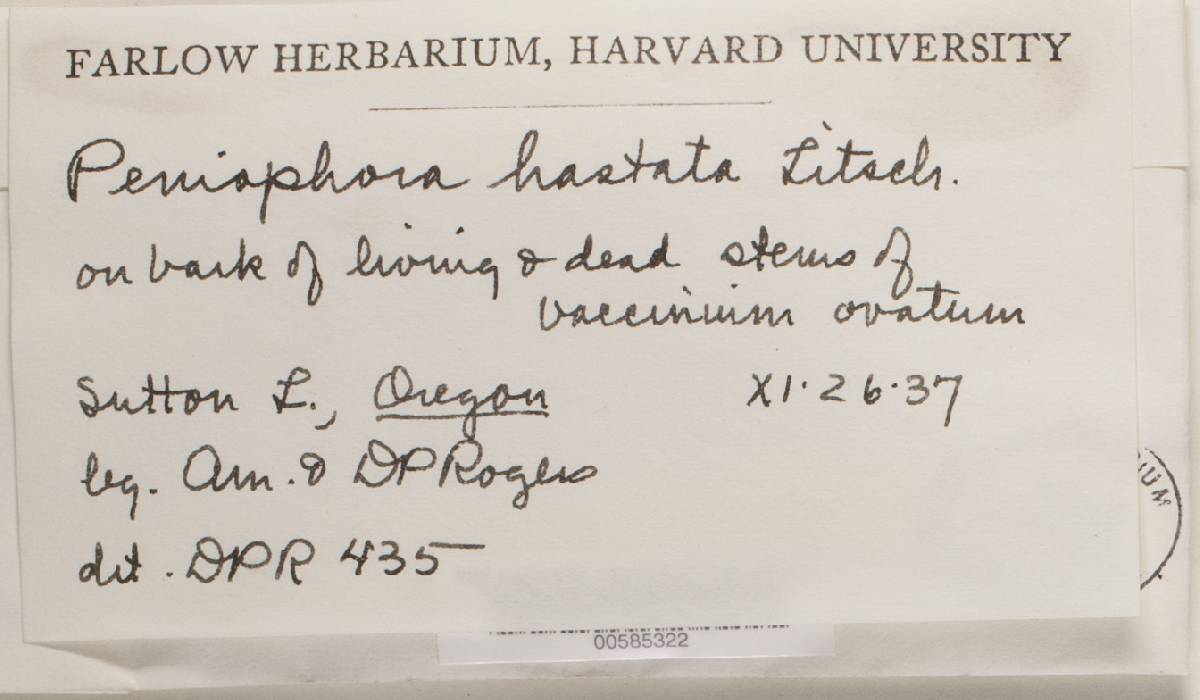 FARLOW HERBARIUM, HARVARD UNIVERSITY
Peniophora hastata Litsch.
on bark of living & dead stems of
vaccinium ovatum
Sutton L., Oregon XI·26·37
leg. Am. & DPRogers
det. DPR 435
00585322